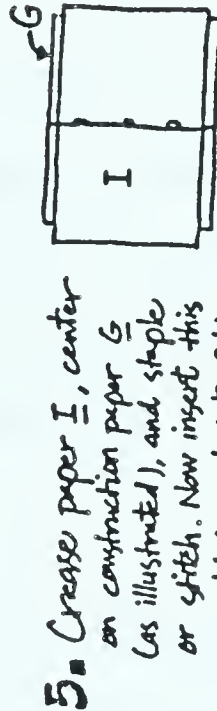 5. Crease paper I, center
on construction paper G
(as illustrated), and staple
or stitch. Now insert this
G
I